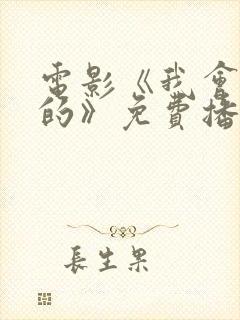 電影《我會
的》免費播
長生果